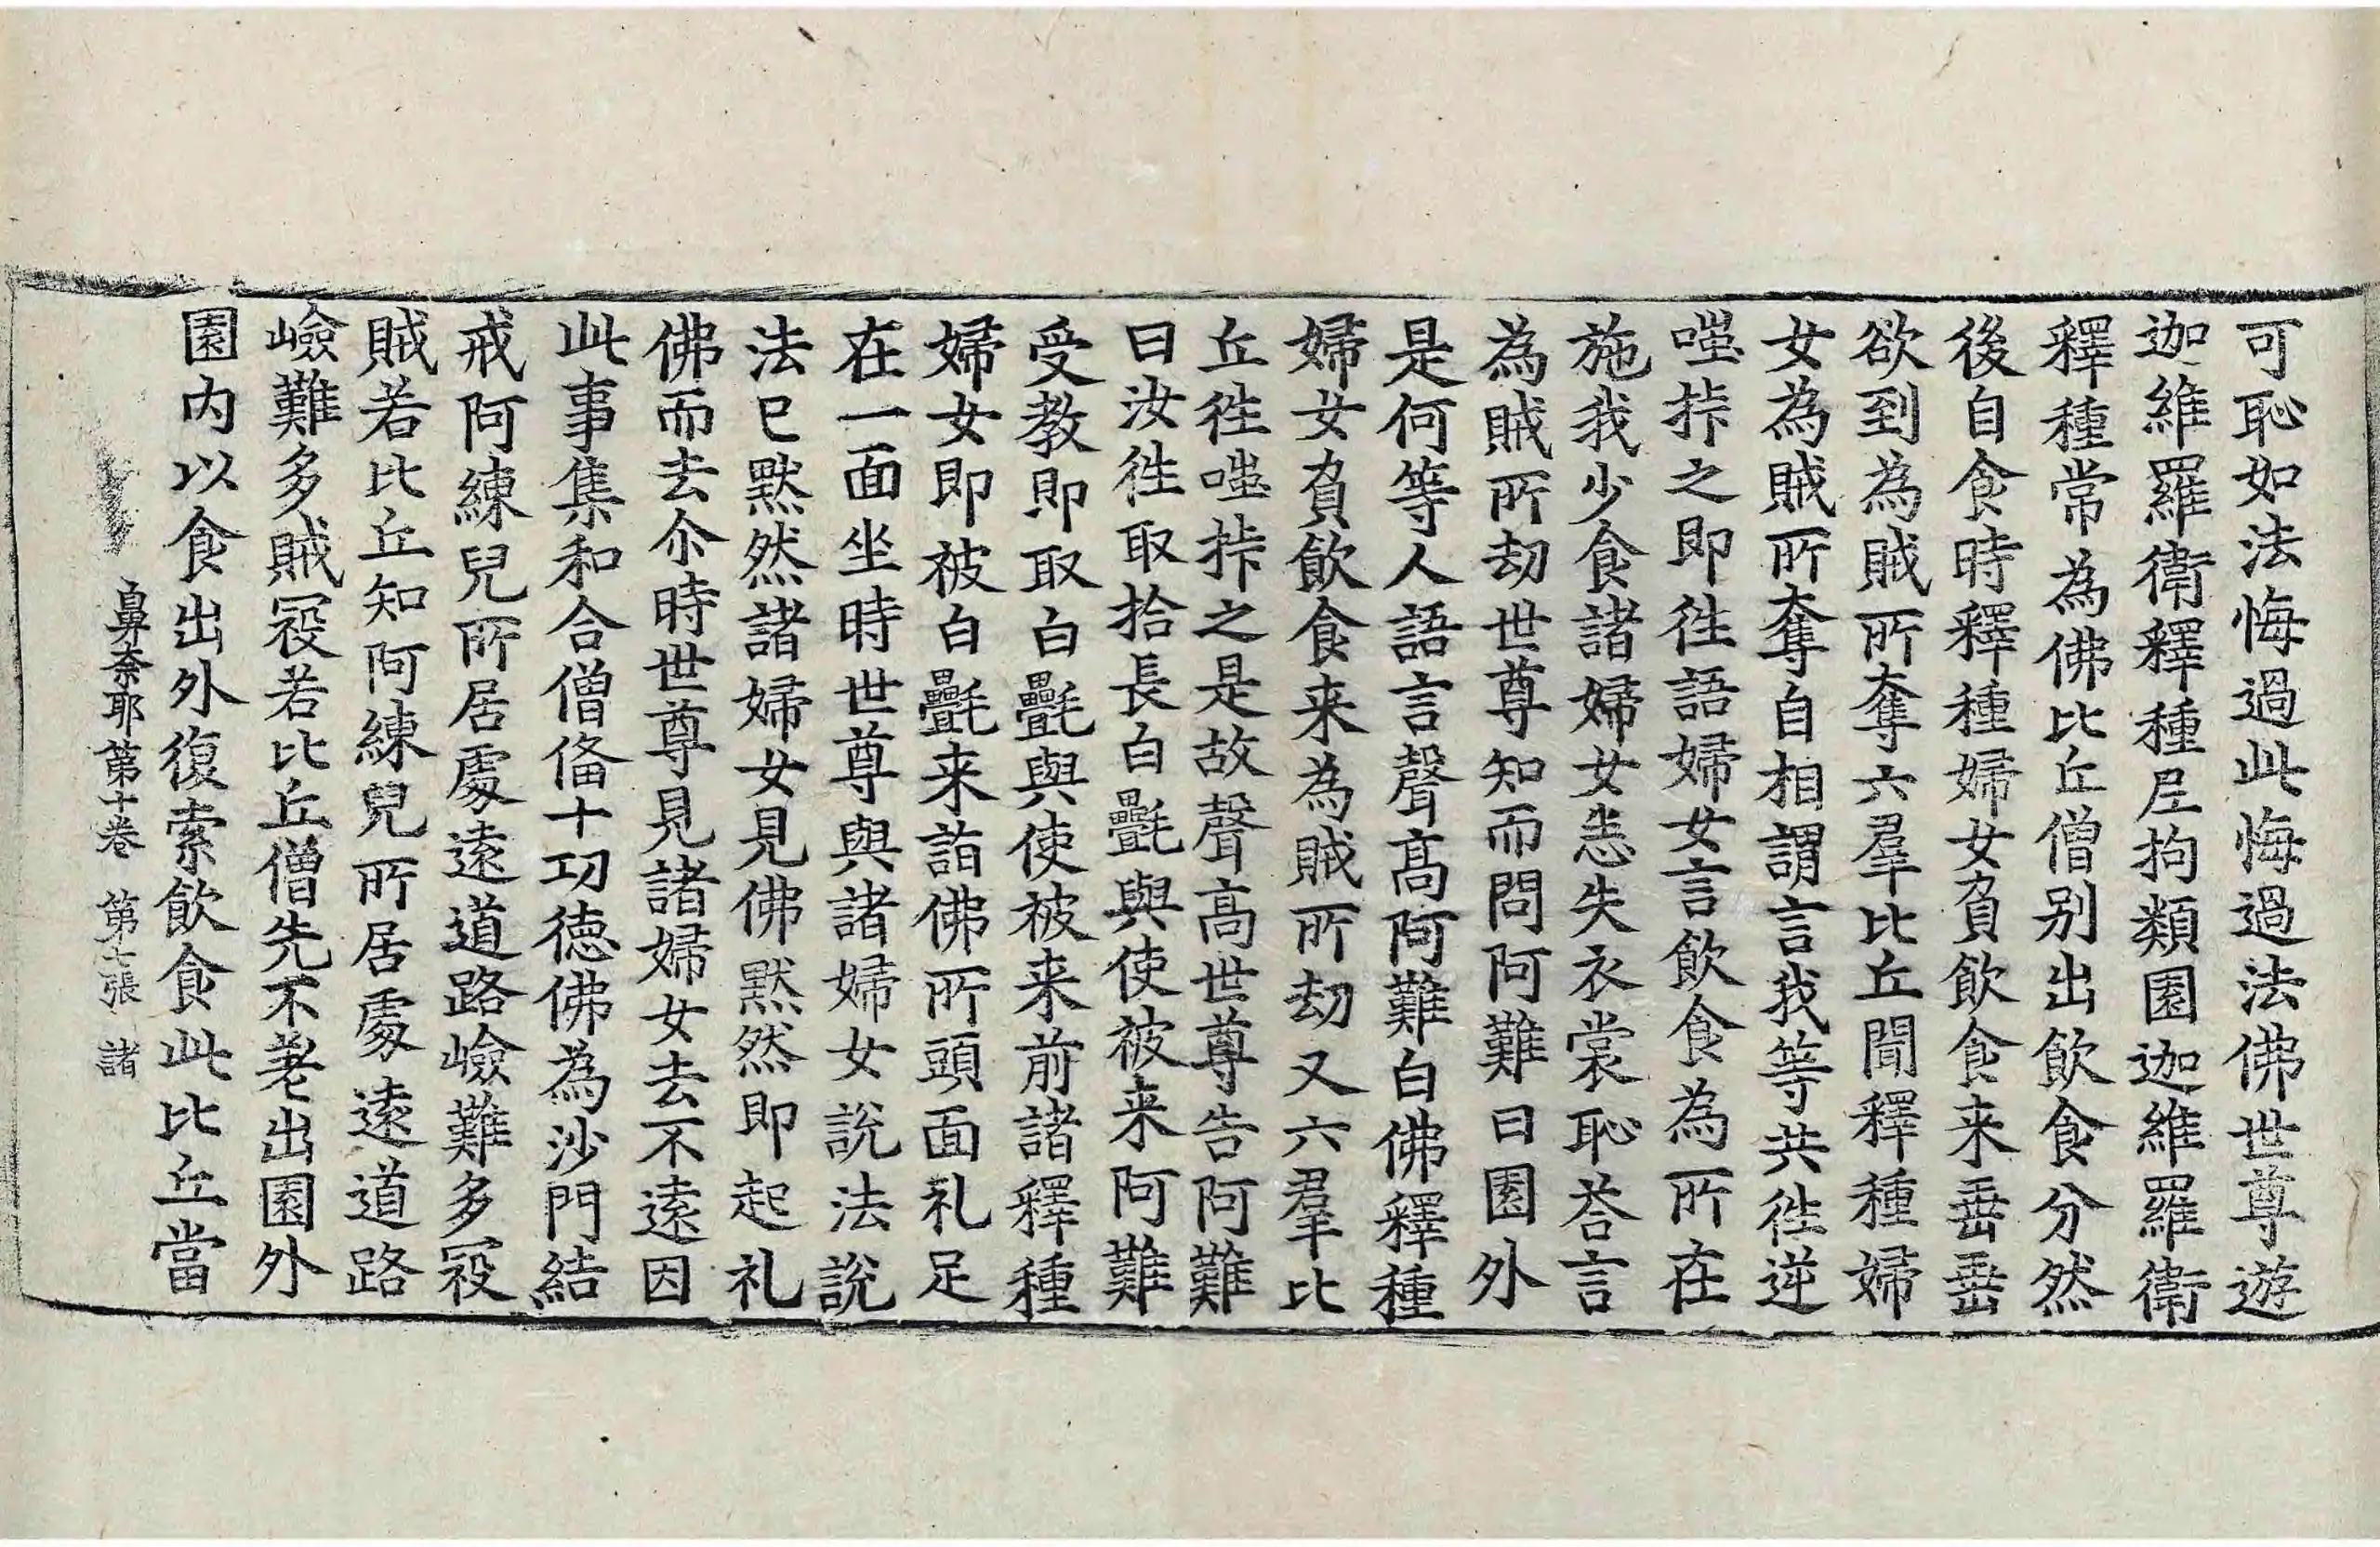 可恥如法悔過此悔過法佛世尊遊
迦維羅衛釋種尼拘類園迦維羅衛
釋種常為佛比丘僧別出飲食分然
後自食時釋種婦女負飲食来垂垂
欲到為賊所奪六羣比丘聞釋種婦
女為賊所奪自相謂言我等共徃逆
嗤㧊之即徃語婦女言飲食為所在
施我少食諸婦女恚失衣裳恥荅言
為賊所刧世尊知而問阿難曰園外
是何等人語言聲髙阿難白佛釋種
婦女負飲食来為賊所刧又六羣比
丘徃嗤㧊之是故聲高世尊告阿難
曰汝徃取拾長白㲲與使被来阿難
受教即取白㲲與使被来前諸釋種
婦女即被白㲲来詣佛所頭面礼足
在一面坐時世尊與諸婦女説法説
法已黙然諸婦女見佛黙然即起礼
佛而去尒時世尊見諸婦女去不遠因
此事集和合僧俻十功徳佛為沙門結
戒阿練兒所居處遠道路嶮難多㓂
賊若比丘知阿練兒所居處遠道路
嶮難多賊㓂若比丘僧先不差出園外
園内以食出外復索飲食此比丘當
鼻奈耶第十卷 第七張 諸